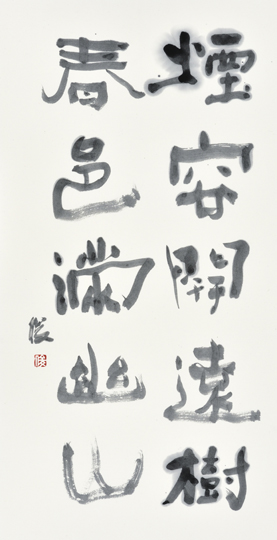 煙容開遠樹
春色滿幽山